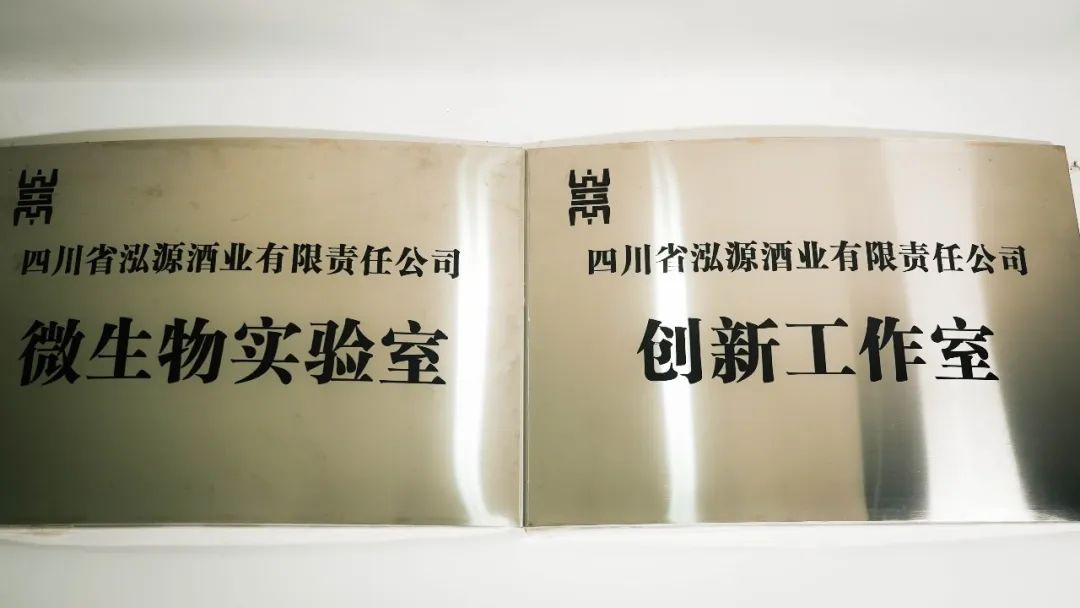 四川省泓源酒业有限责任公司
微生物实验室
四川省泓源酒业有限责任公司
创新工作室